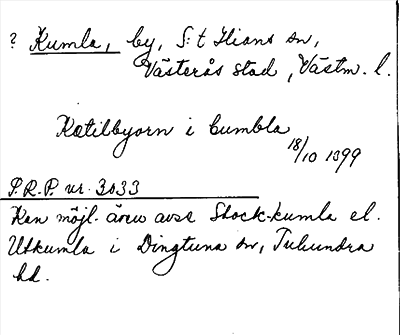 ? Kumla, by, S:t Ilians sn,
Västerås stad, Västm. l.
Kætilbyorn i Cumbla
18/10 1399
P.R.P. nr 3033
Kan möjl. även avse Stock-kumla el.
Utkumla i Dingtuna sn, Tuhundra
hd.